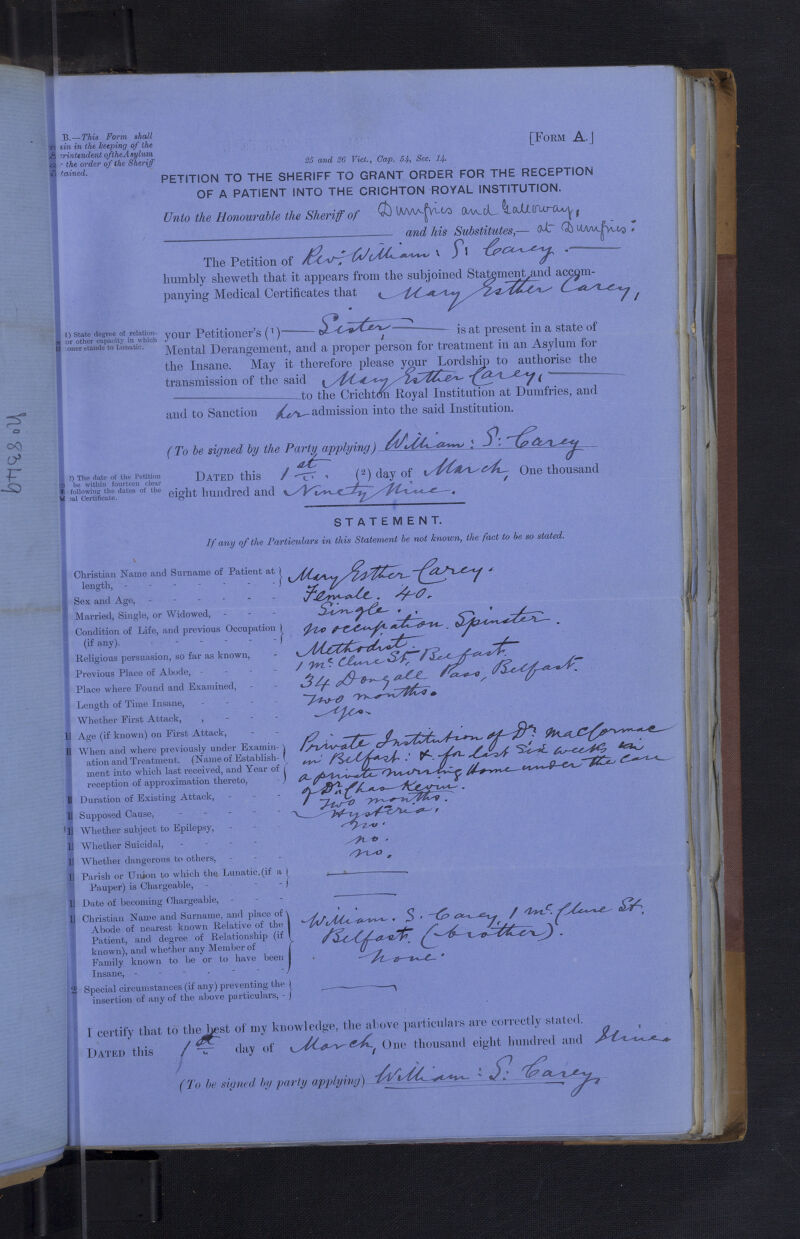 B.—This Form shall
in the keeping of the
of the Asylum
the order of the Sheriff
tained.
[FORM A.]
25 and 26 Vict., Cap. 54, Sec. 14.
PETITION TO THE SHERIFF TO GRANT ORDER FOR THE RECEPTION
OF A PATIENT INTO THE CRICHTON ROYAL INSTITUTION.
Unto the Honourable the Sheriff of Dumfries and Galloway,
and his Substitutes,— at Dumfries:
The Petition of Rev: William: S: Carey.
humbly sheweth that it appears from the subjoined Statement and accom-
panying Medical Certificates that Mary Esther Carey,
1) State degree of relation-
or other capacity in which
stands to Lunatic.
your Petitioner's (1) Sister, is at present in a state of
Mental Derangement, and a proper person for treatment in an Asylum for
the Insane. May it therefore please your Lordship to authorise the
transmission of the said Mary Esther Carey,
to the Crichton Royal Institution at Dumfries, and
and to Sanction her admission into the said Institution.
No 8349
(To be signed by the Party applying) William: S: Carey
2) The date of the Petition
be within fourteen clear
following the dates of the
Certificate.
DATED this 1st (2) day of March, One thousand
eight hundred and Ninety Nine.
STATEMENT.
If any of the Particulars in this Statement be not known, the fact to be so stated.
Christian Name and Surname of Patient at length, - Mary Esther Carey.
Sex and Age, - Female. 40.
Married, Single, or Widowed, - Single.
Condition of Life, and previous Occupation (if any). no occupation. Spinster.
Religious persuasion, so far as known, - Methodist
Previous Place of Abode, - 1 Mc Clure St, Belfast
Place where Found and Examined, - 34 Donegall Pass, Belfast.
Length of Time Insane, - Two months.
Whether First Attack, - Yes.
Age (if known) on First Attack,
When and where previously under Examin- Private Institution of Dr MacCormac
ation and Treatment. (Name of Establish- in Belfast: & for last Six weeks in
ment into which last received, and Year of a private nursing Home under the care
reception of approximation thereto, of Dr Chas Kevin.
Duration of Existing Attack, - Two months.
Supposed Cause, - Hysteria.
Whether subject to Epilepsy, - no.
Whether Suicidal, - no.
Whether dangerous to others, - no.
Parish or Union to which the Lunatic (if a
Pauper) is Chargeable, -
Date of becoming Chargeable, -
Christian Name and Surname, and place of William. S. Carey, 1 Mc Clure St.
Abode of nearest known Relative of the Belfast. (brother).
Patient, and degree of Relationship (if
known), and whether any Member of none.
Family known to be or to have been
Insane, -
Special circumstances (if any) preventing the
insertion of any of the above particulars, -
I certify that to the best of my knowledge, the above particulars are correctly stated.
DATED this 1st day of March, One thousand eight hundred and Nine
(To be signed by party applying) William: S: Carey,